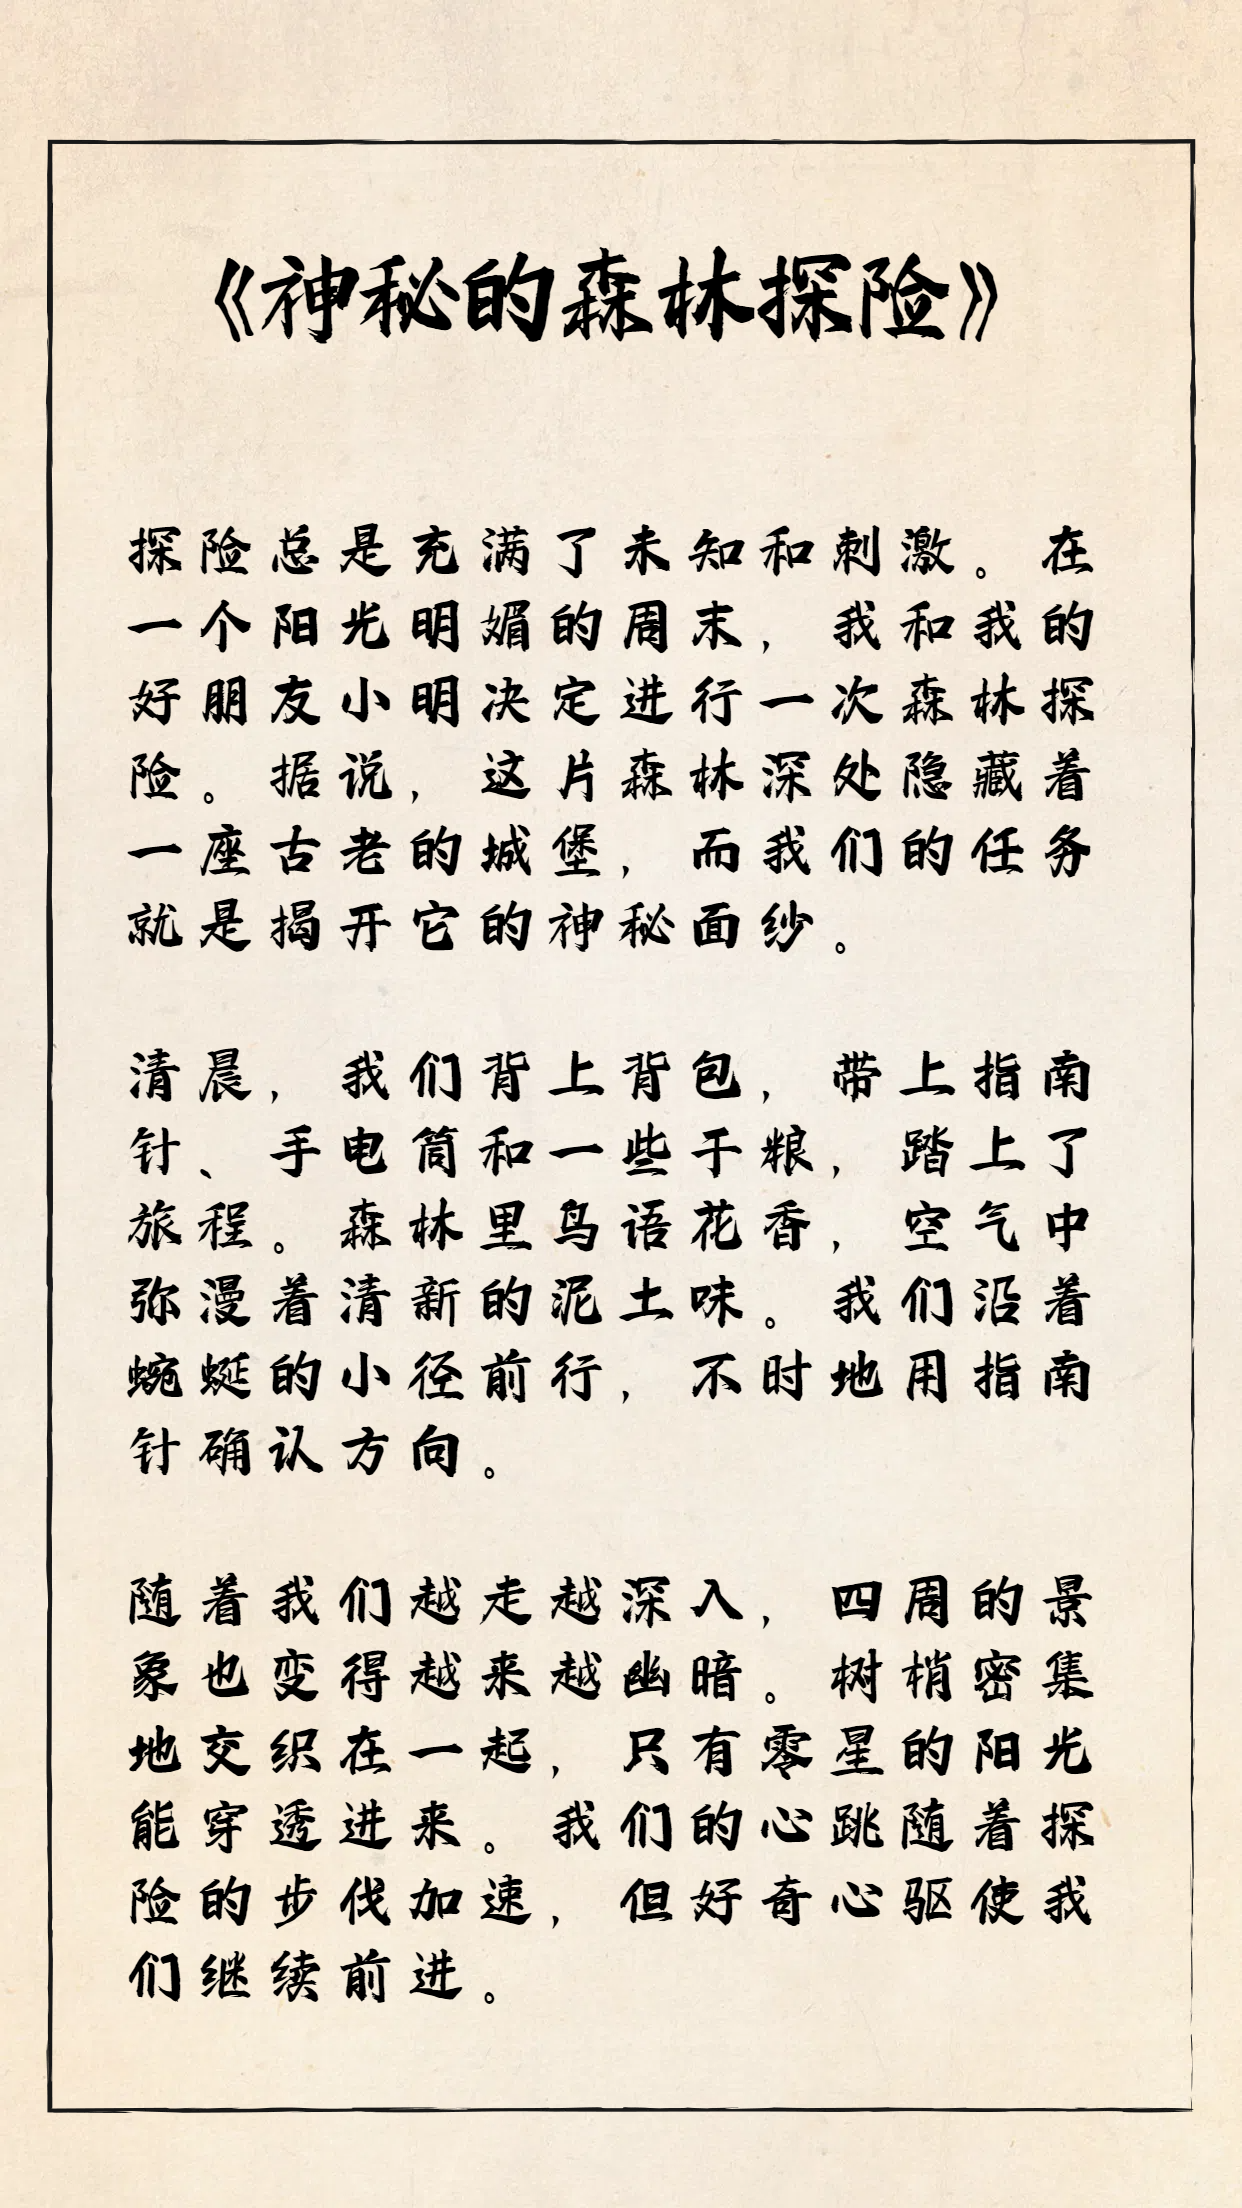 《神秘的森林探险》
探险总是充满了未知和刺激。在
一个阳光明媚的周末，我和我的
好朋友小明决定进行一次森林探
险。据说，这片森林深处隐藏着
一座古老的城堡，而我们的任务
就是揭开它的神秘面纱。
清晨，我们背上背包，带上指南
针、手电筒和一些干粮，踏上了
旅程。森林里鸟语花香，空气中
弥漫着清新的泥土味。我们沿着
蜿蜒的小径前行，不时地用指南
针确认方向。
随着我们越走越深入，四周的景
象也变得越来越幽暗。树梢密集
地交织在一起，只有零星的阳光
能穿透进来。我们的心跳随着探
险的步伐加速，但好奇心驱使我
们继续前进。